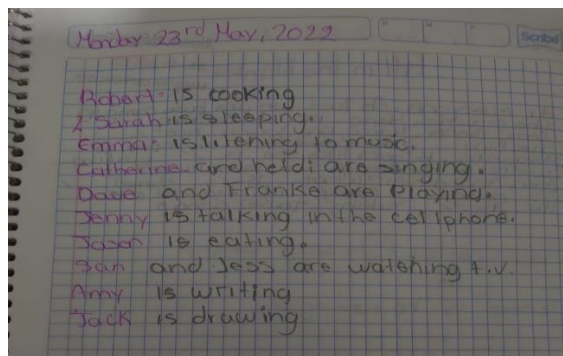 Monday 23rd May, 2022
Scribe
Robert is cooking
Sarah is sleeping.
Emma is listening to music.
Catherine and heidi are singing.
Dave and Franke are Playing.
Jenny is talking in the cellphone.
Jason is eating.
San and Jess are watching t.v.
Amy is writing
Jack is drawing